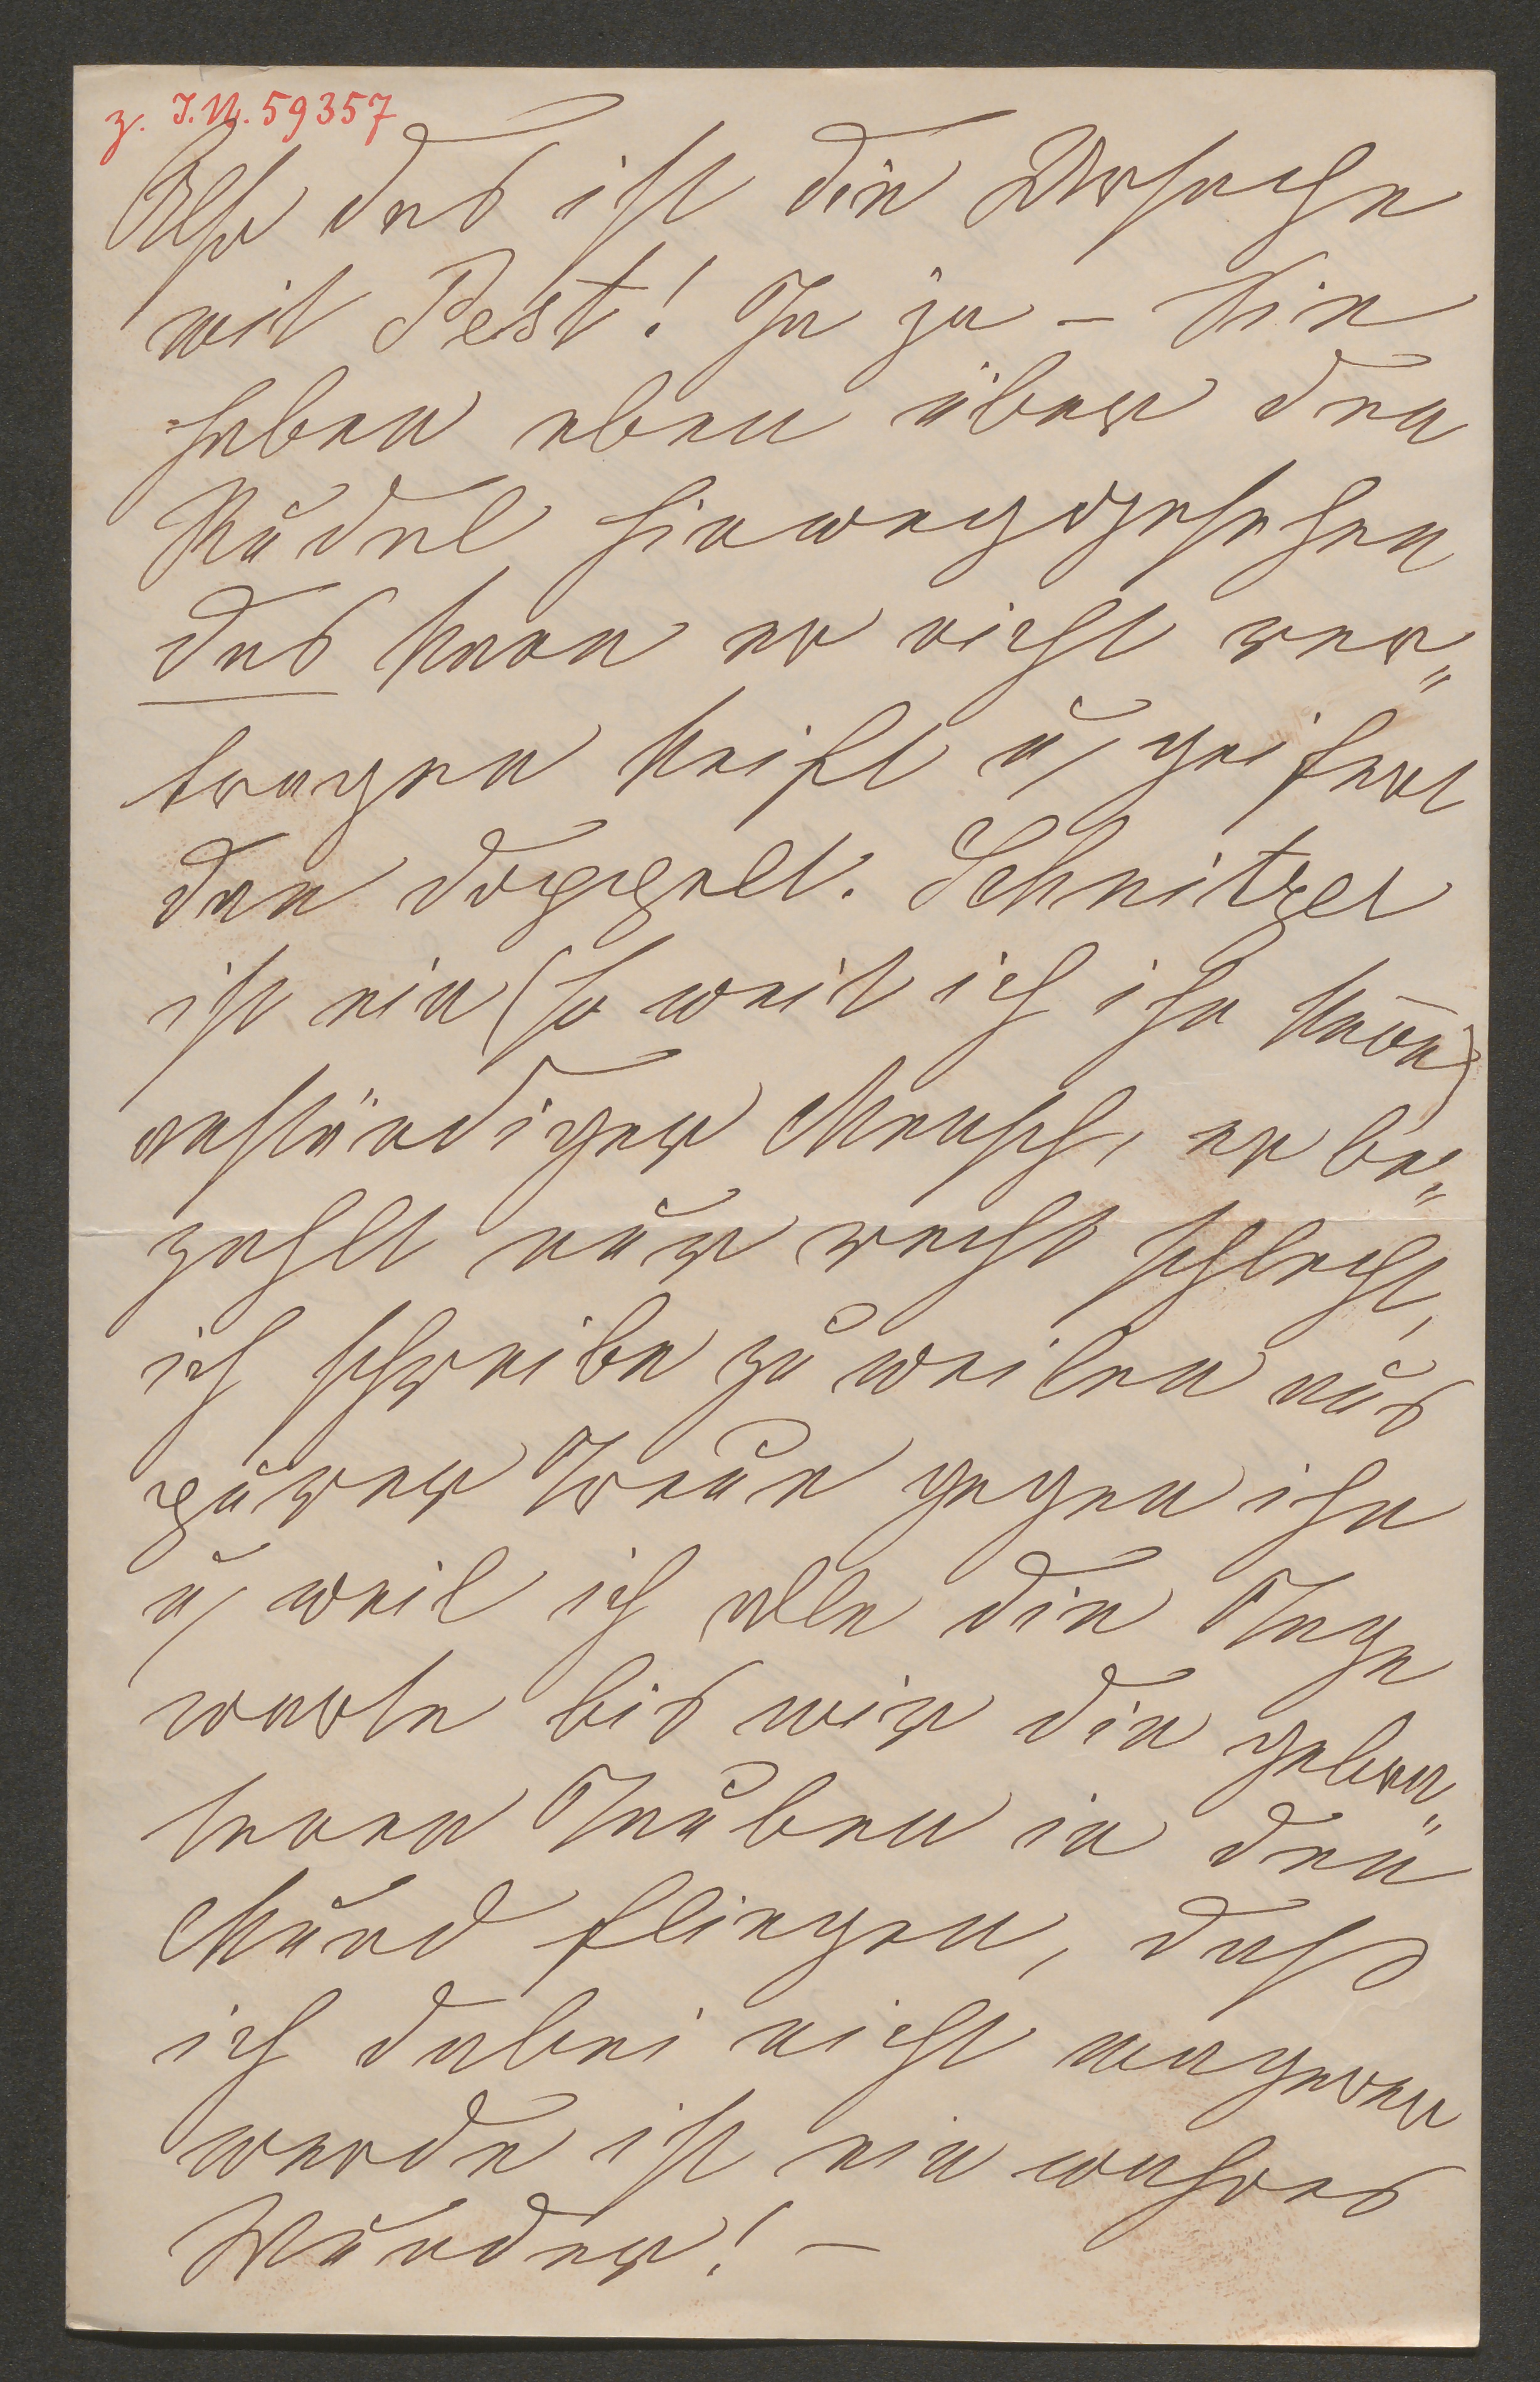 z. I.N. 59357
Also das ist die Ursache
mit Pest! Ja ja – Sie
haben eben über den
Rudel hinweggesehen
das kann er nicht ver„
tragen keift u geifert
den doppelt. Schnitzer
ist ein (so weit ich ihn keñe)
anständiger Mensch, er be„
zahlt nur recht schlecht,
ich schreibe zuweilen aus
purer Treue gegen ihn
u weil ich alle die Tage
warte bis mir die gebra„
tenen Tauben in den
Mund fliegen, dass
ich dabei nicht magerer
werde ist ein wahres
Wunder! –